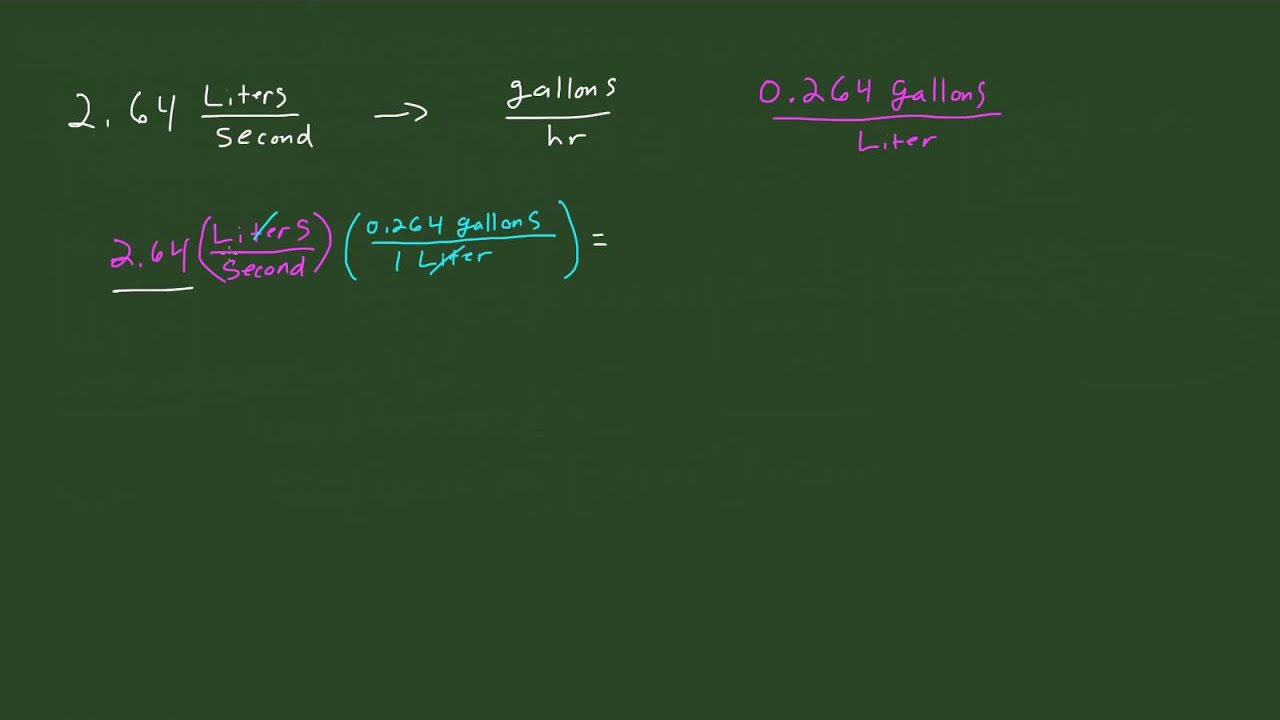 2.64 Liters/Second → gallons/hr 0.264 gallons/Liter
2.64 (Liters/Second) (0.264 gallons/1 Liter) =